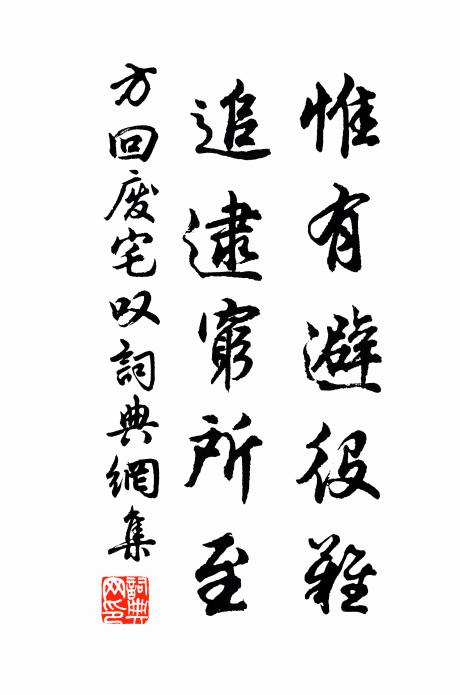 惟有避役難
追逮窮所至
方回廢宅叹詞典網集
詞典網印